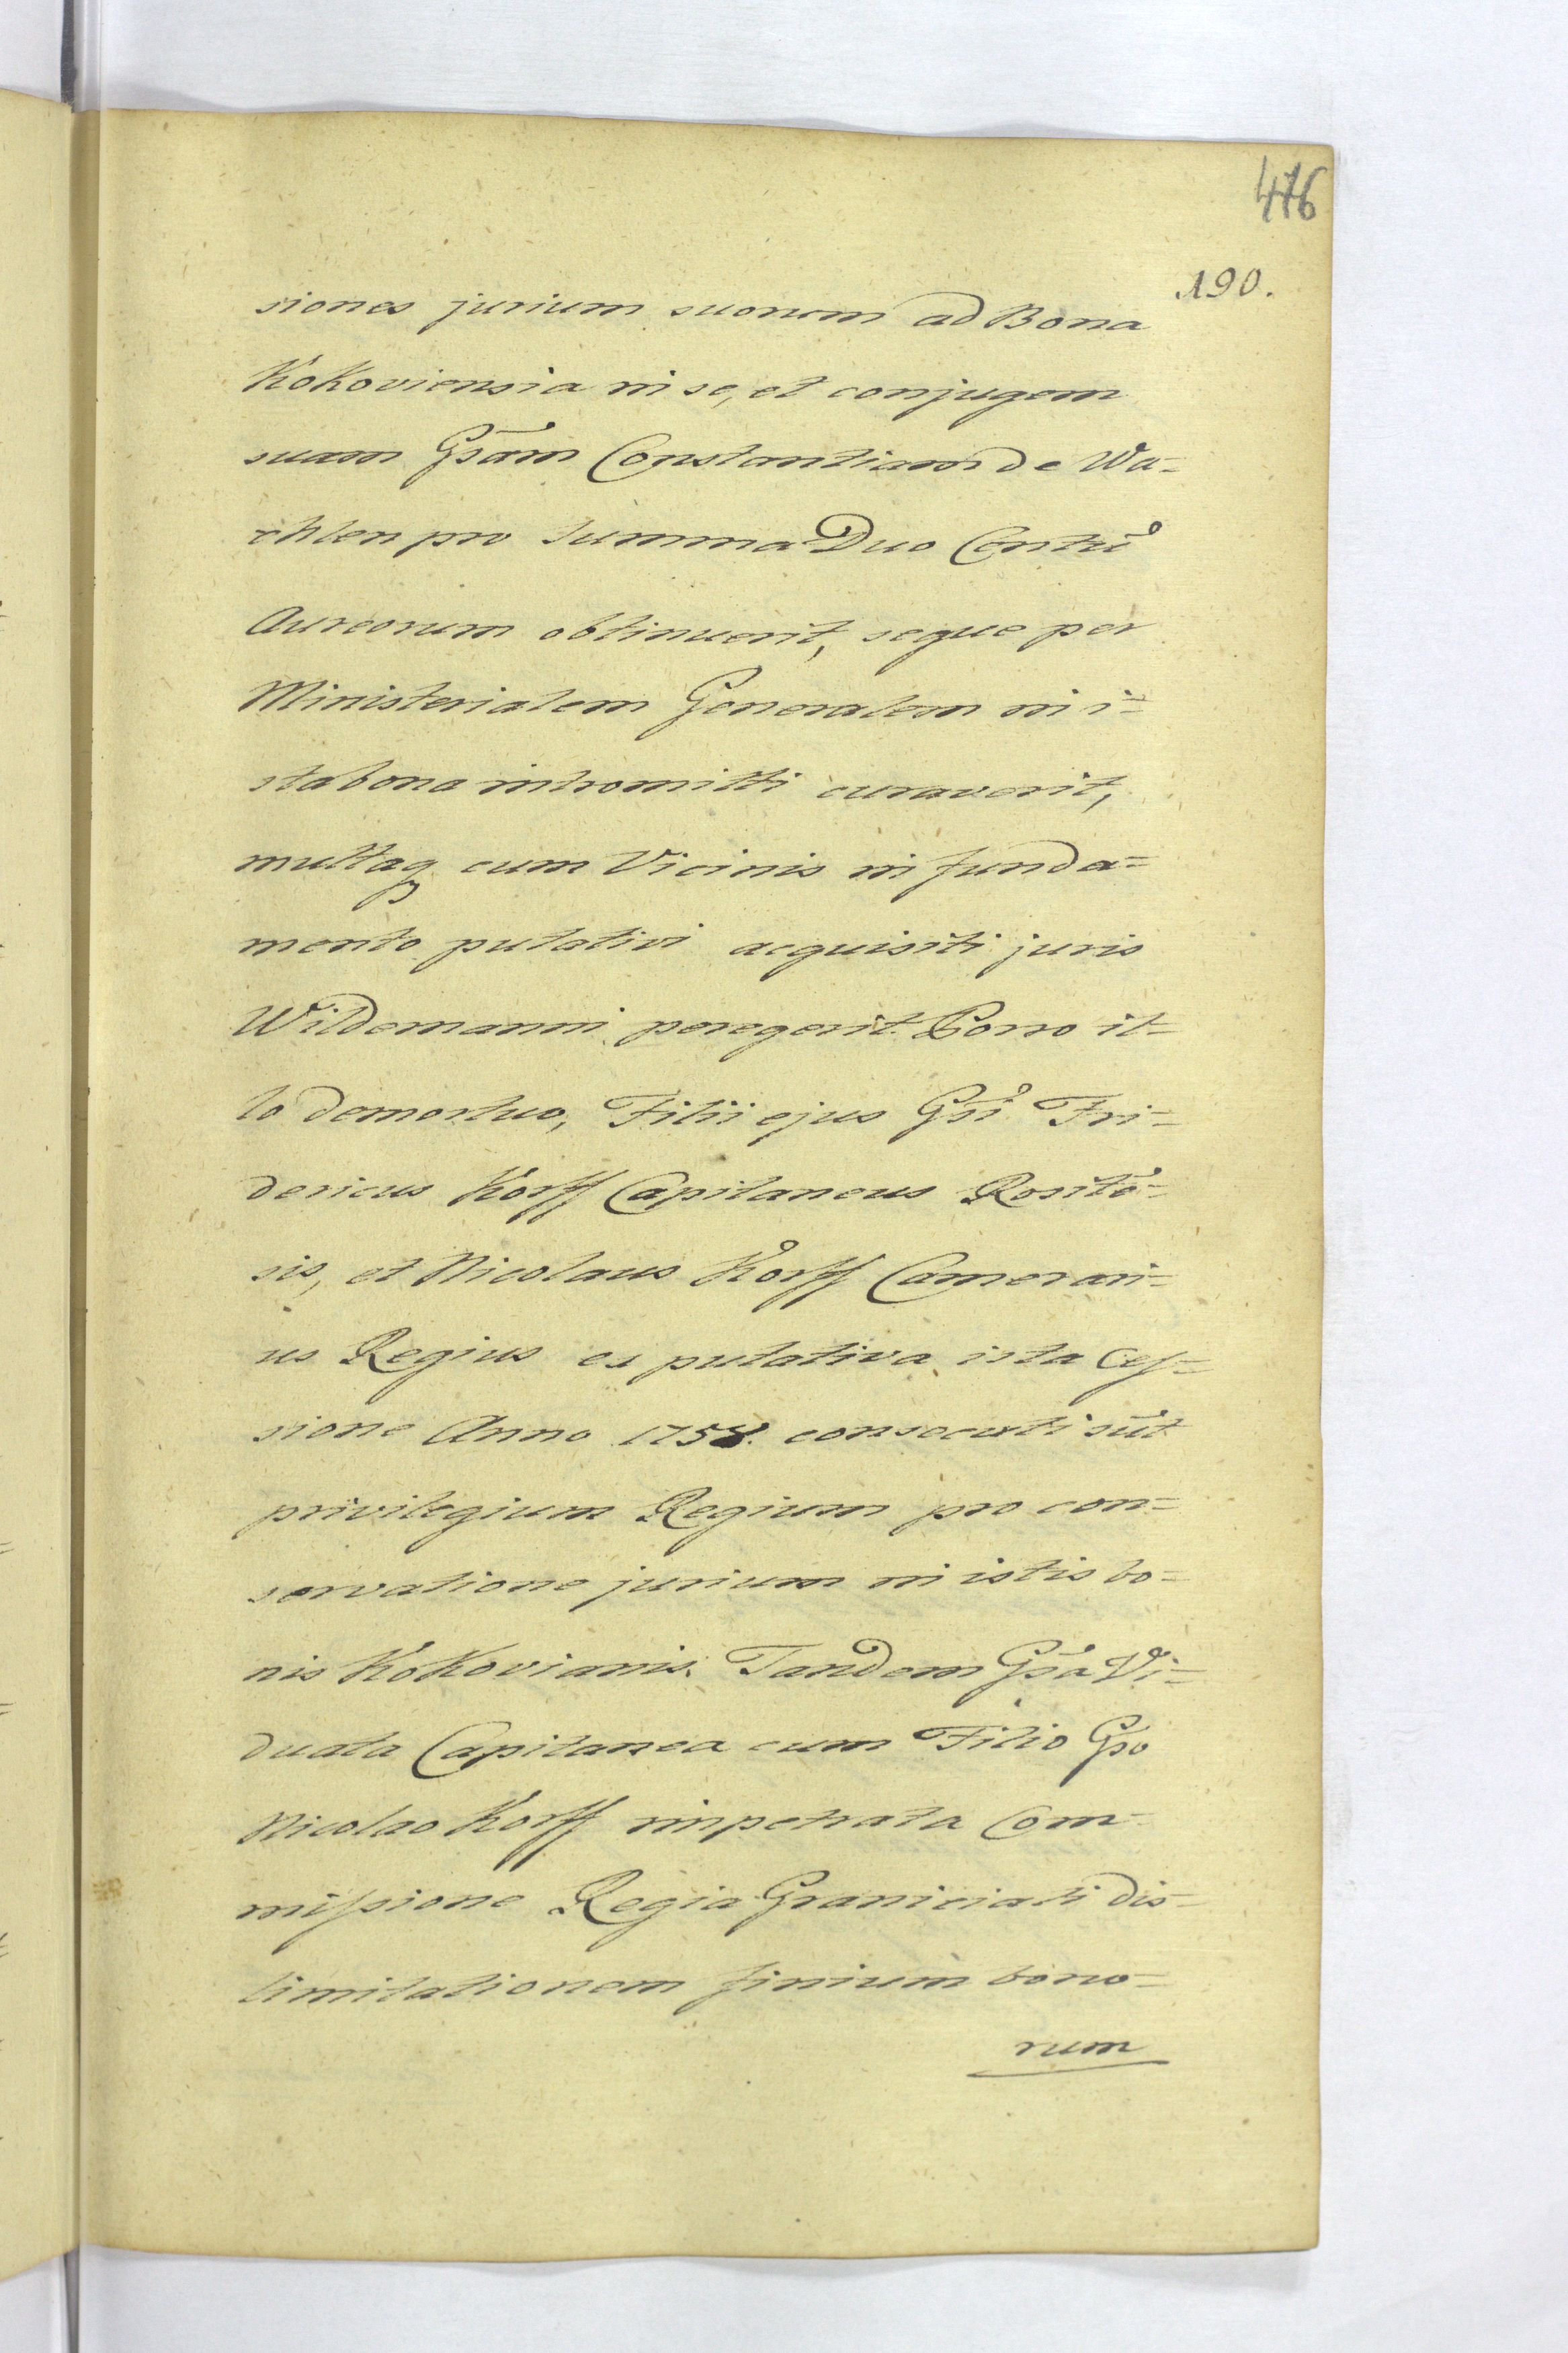 476
190.
siones jurium suorum ad Bona
Kokoviensia in se, et conjugem
suam Gsam Constantiam de Wa=
chlen pro summa Duo Centũ
Aureorum obtinuerit, seque per
Ministerialem Generalem in i=
sta bona intromitti curaverit,
multaq cum Vicinis in funda=
mento putativi acquisiti juris
Wildemanni peregerit. Porro il=
lo demortuo, Filii ejus Gsi Fri=
dericus Korff Capitaneus Rosite=
sis, et Nicolaus Korff Camerari=
us Regius ex putativa ista Ces=
sione Anno 1758. consecuti sũt
privilegium Regium pro con=
servatione jurium in istis bo=
nis Kokovianis. Tandem Gsa Vi=
duata Capitanea cum Filio Gso
Nicolao Korff impetrata Com=
missione Regia Graniciali dis=
limitationem finium bono=
rum